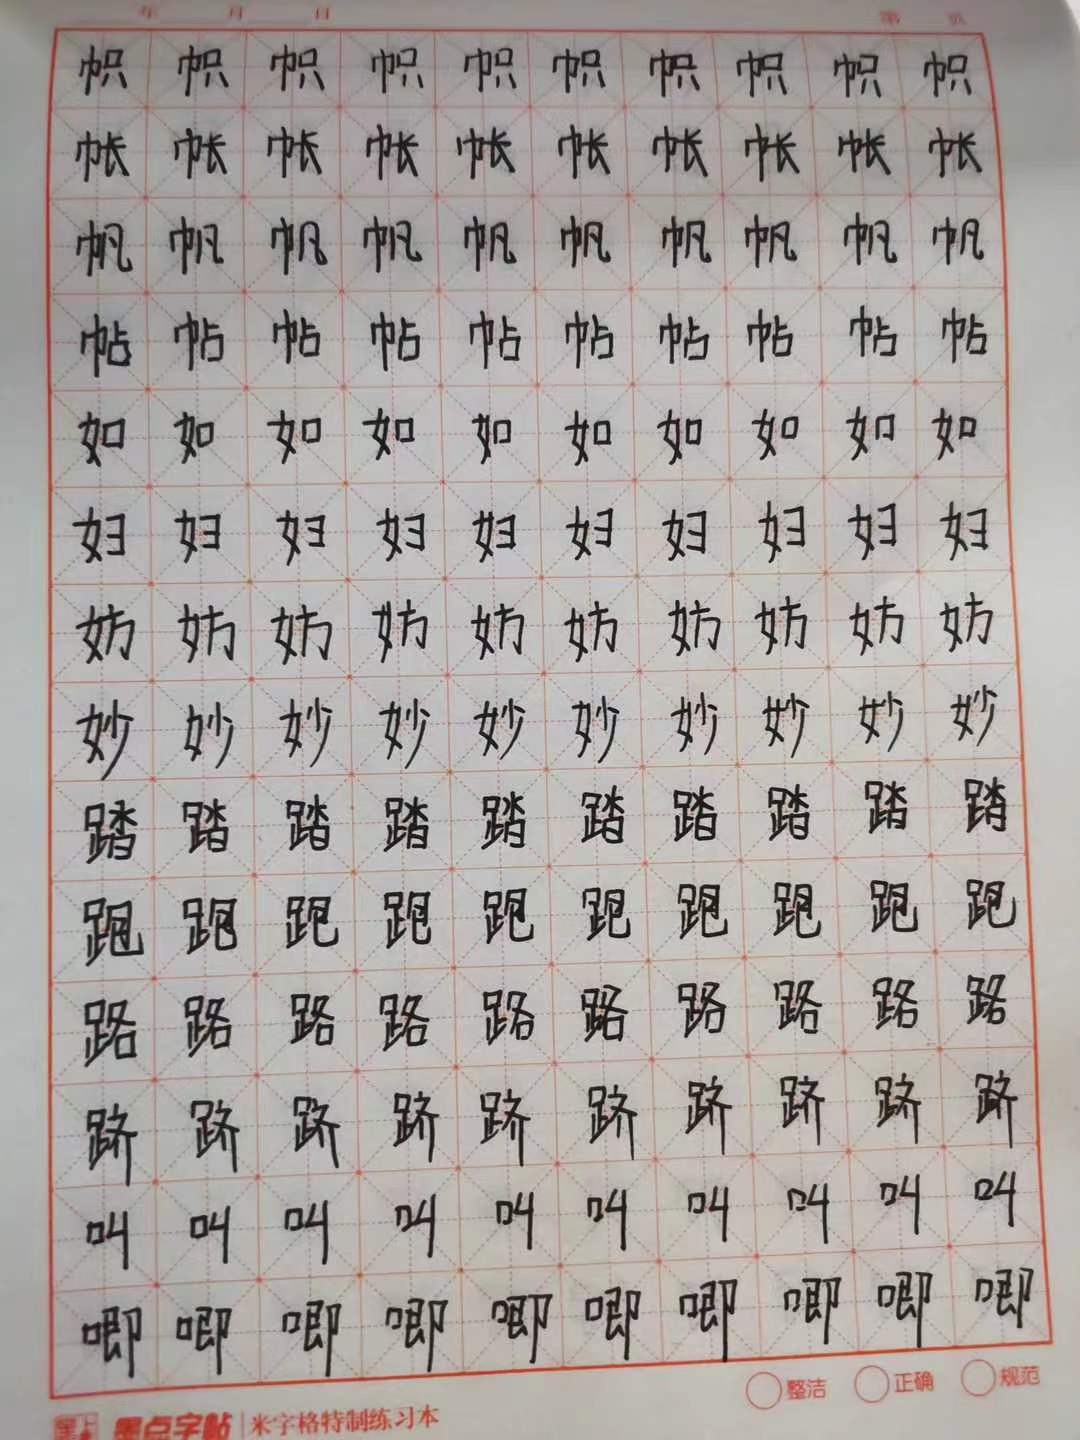 年 月 日 第 页
帜 帜 帜 帜 帜 帜 帜 帜 帜 帜
帐 帐 帐 帐 帐 帐 帐 帐 帐 帐
帆 帆 帆 帆 帆 帆 帆 帆 帆 帆
帖 帖 帖 帖 帖 帖 帖 帖 帖 帖
如 如 如 如 如 如 如 如 如 如
妇 妇 妇 妇 妇 妇 妇 妇 妇 妇
妨 妨 妨 妨 妨 妨 妨 妨 妨 妨
妙 妙 妙 妙 妙 妙 妙 妙 妙 妙
踏 踏 踏 踏 踏 踏 踏 踏 踏 踏
跑 跑 跑 跑 跑 跑 跑 跑 跑 跑
路 路 路 路 路 路 路 路 路 路
跻 跻 跻 跻 跻 跻 跻 跻 跻 跻
叫 叫 叫 叫 叫 叫 叫 叫 叫 叫
唧 唧 唧 唧 唧 唧 唧 唧 唧 唧
整洁 正确 规范
墨点字帖 米字格特制练习本